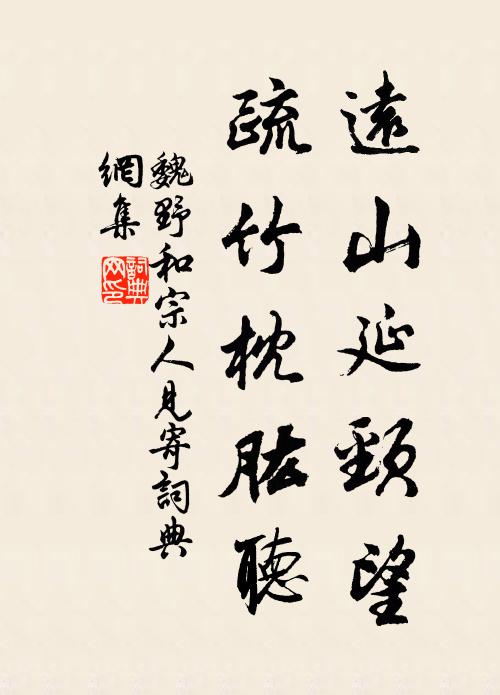 遠山延頸望
疏竹枕肱聽
魏野和宗人見寄詞典
網集
詞典網印